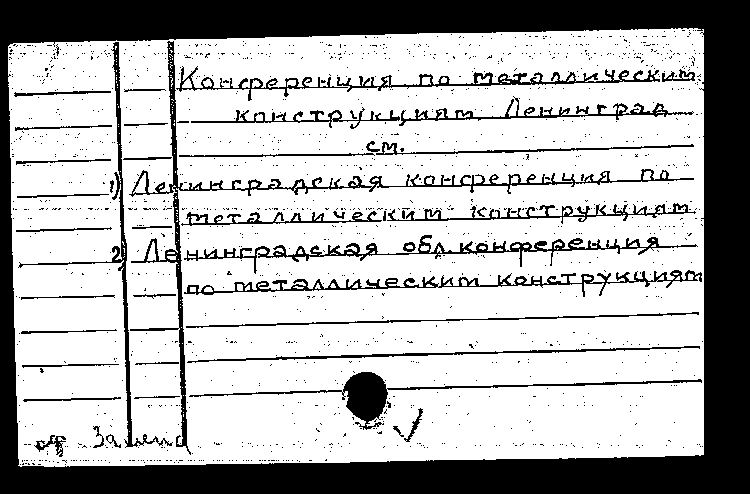 Конференция по металлическим
конструкциям. Ленинград
см.
1) Ленинградская конференция по
металлическим конструкциям
2) Ленинградская обл. конференция
по металлическим конструкциям